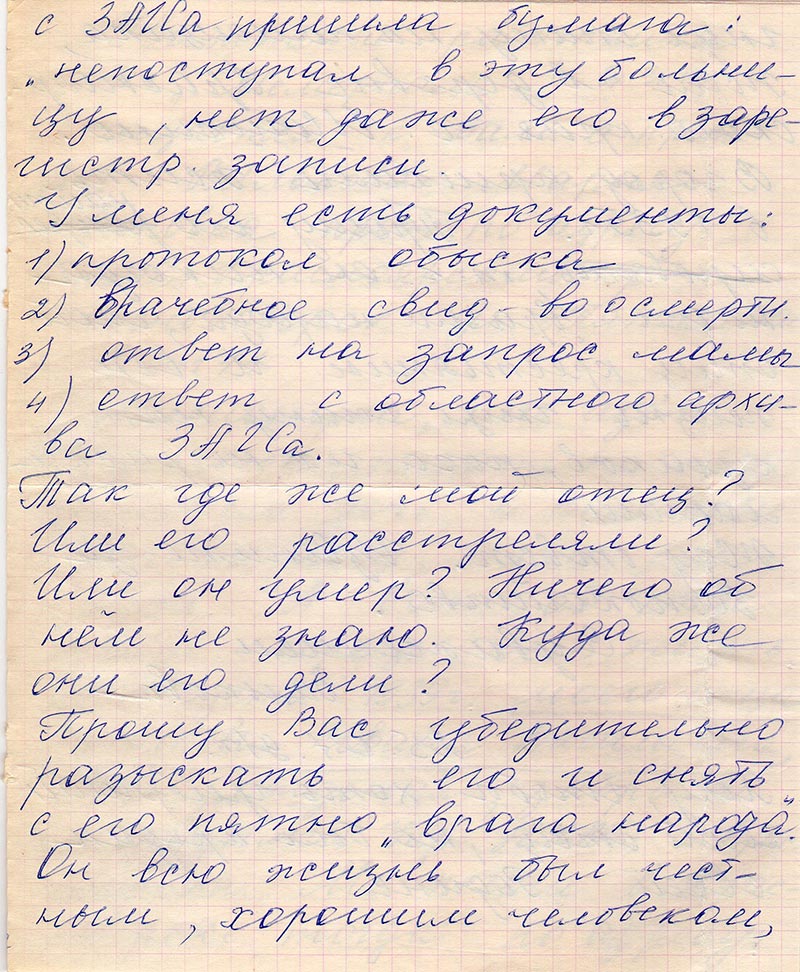 с ЗАГСа пришла бумага:
„непоступал в эту больни-
цу, нет даже его в заре-
гистр. записи.
У меня есть документы:
1) протокол обыска
2) врачебное свид-во о смерти.
3) ответ на запрос мамы
4) ответ с областного архи-
ва ЗАГСа.
Так где же мой отец?
Или его расстреляли?
Или он умер? Ничего об
нём не знаю. Куда же
они его дели?
Прошу Вас убедительно
разыскать его и снять
с его пятно „врага народа".
Он всю жизнь был чест-
ным, хорошим человеком,